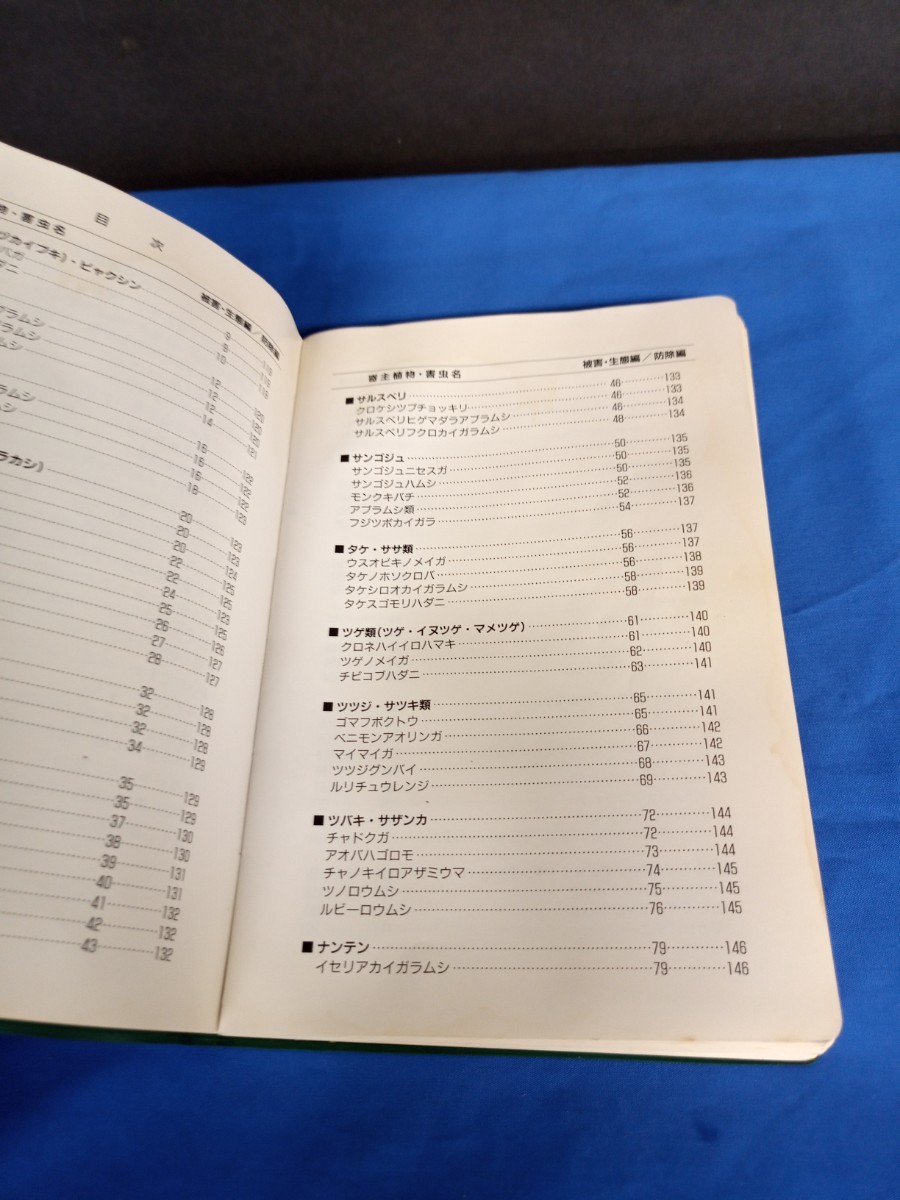 目 次
物・害虫名
被害・生態編／防除編
カイブキ)・ビャクシン
9 119
9 119
10 119
12 120
12 120
14 121
16 122
16 122
18 123
ラカシ)
20 123
20 124
22 125
22 125
24 125
25 125
26 126
27 127
28 127
32 128
32 128
32 128
34 129
35 129
35 129
37 130
38 130
39 131
40 131
41 132
42 132
43 132
寄主植物・害虫名 被害・生態編／防除編
■ サルスベリ 46 133
クロケシツブチョッキリ 46 133
サルスベリヒゲマダラアブラムシ 46 134
サルスベリフクロカイガラムシ 48 134
■ サンゴジュ 50 135
サンゴジュニセスガ 50 135
サンゴジュハムシ 50 135
モンクキバチ 52 136
アブラムシ類 52 136
フジツボカイガラ 54 137
■ タケ・ササ類 56 137
ウスオビキノメイガ 56 137
タケノホソクロバ 56 138
タケシロオカイガラムシ 58 139
タケスゴモリハダニ 58 139
■ ツゲ類(ツゲ・イヌツゲ・マメツゲ) 61 140
クロネハイイロハマキ 61 140
ツゲノメイガ 62 140
チビコブハダニ 63 141
■ ツツジ・サツキ類 65 141
ゴマフボクトウ 65 141
ベニモンアオリンガ 66 142
マイマイガ 67 142
ツツジグンバイ 68 143
ルリチュウレンジ 69 143
■ ツバキ・サザンカ 72 144
チャドクガ 72 144
アオバハゴロモ 73 144
チャノキイロアザミウマ 74 145
ツノロウムシ 75 145
ルビーロウムシ 76 145
■ ナンテン 79 146
イセリアカイガラムシ 79 146